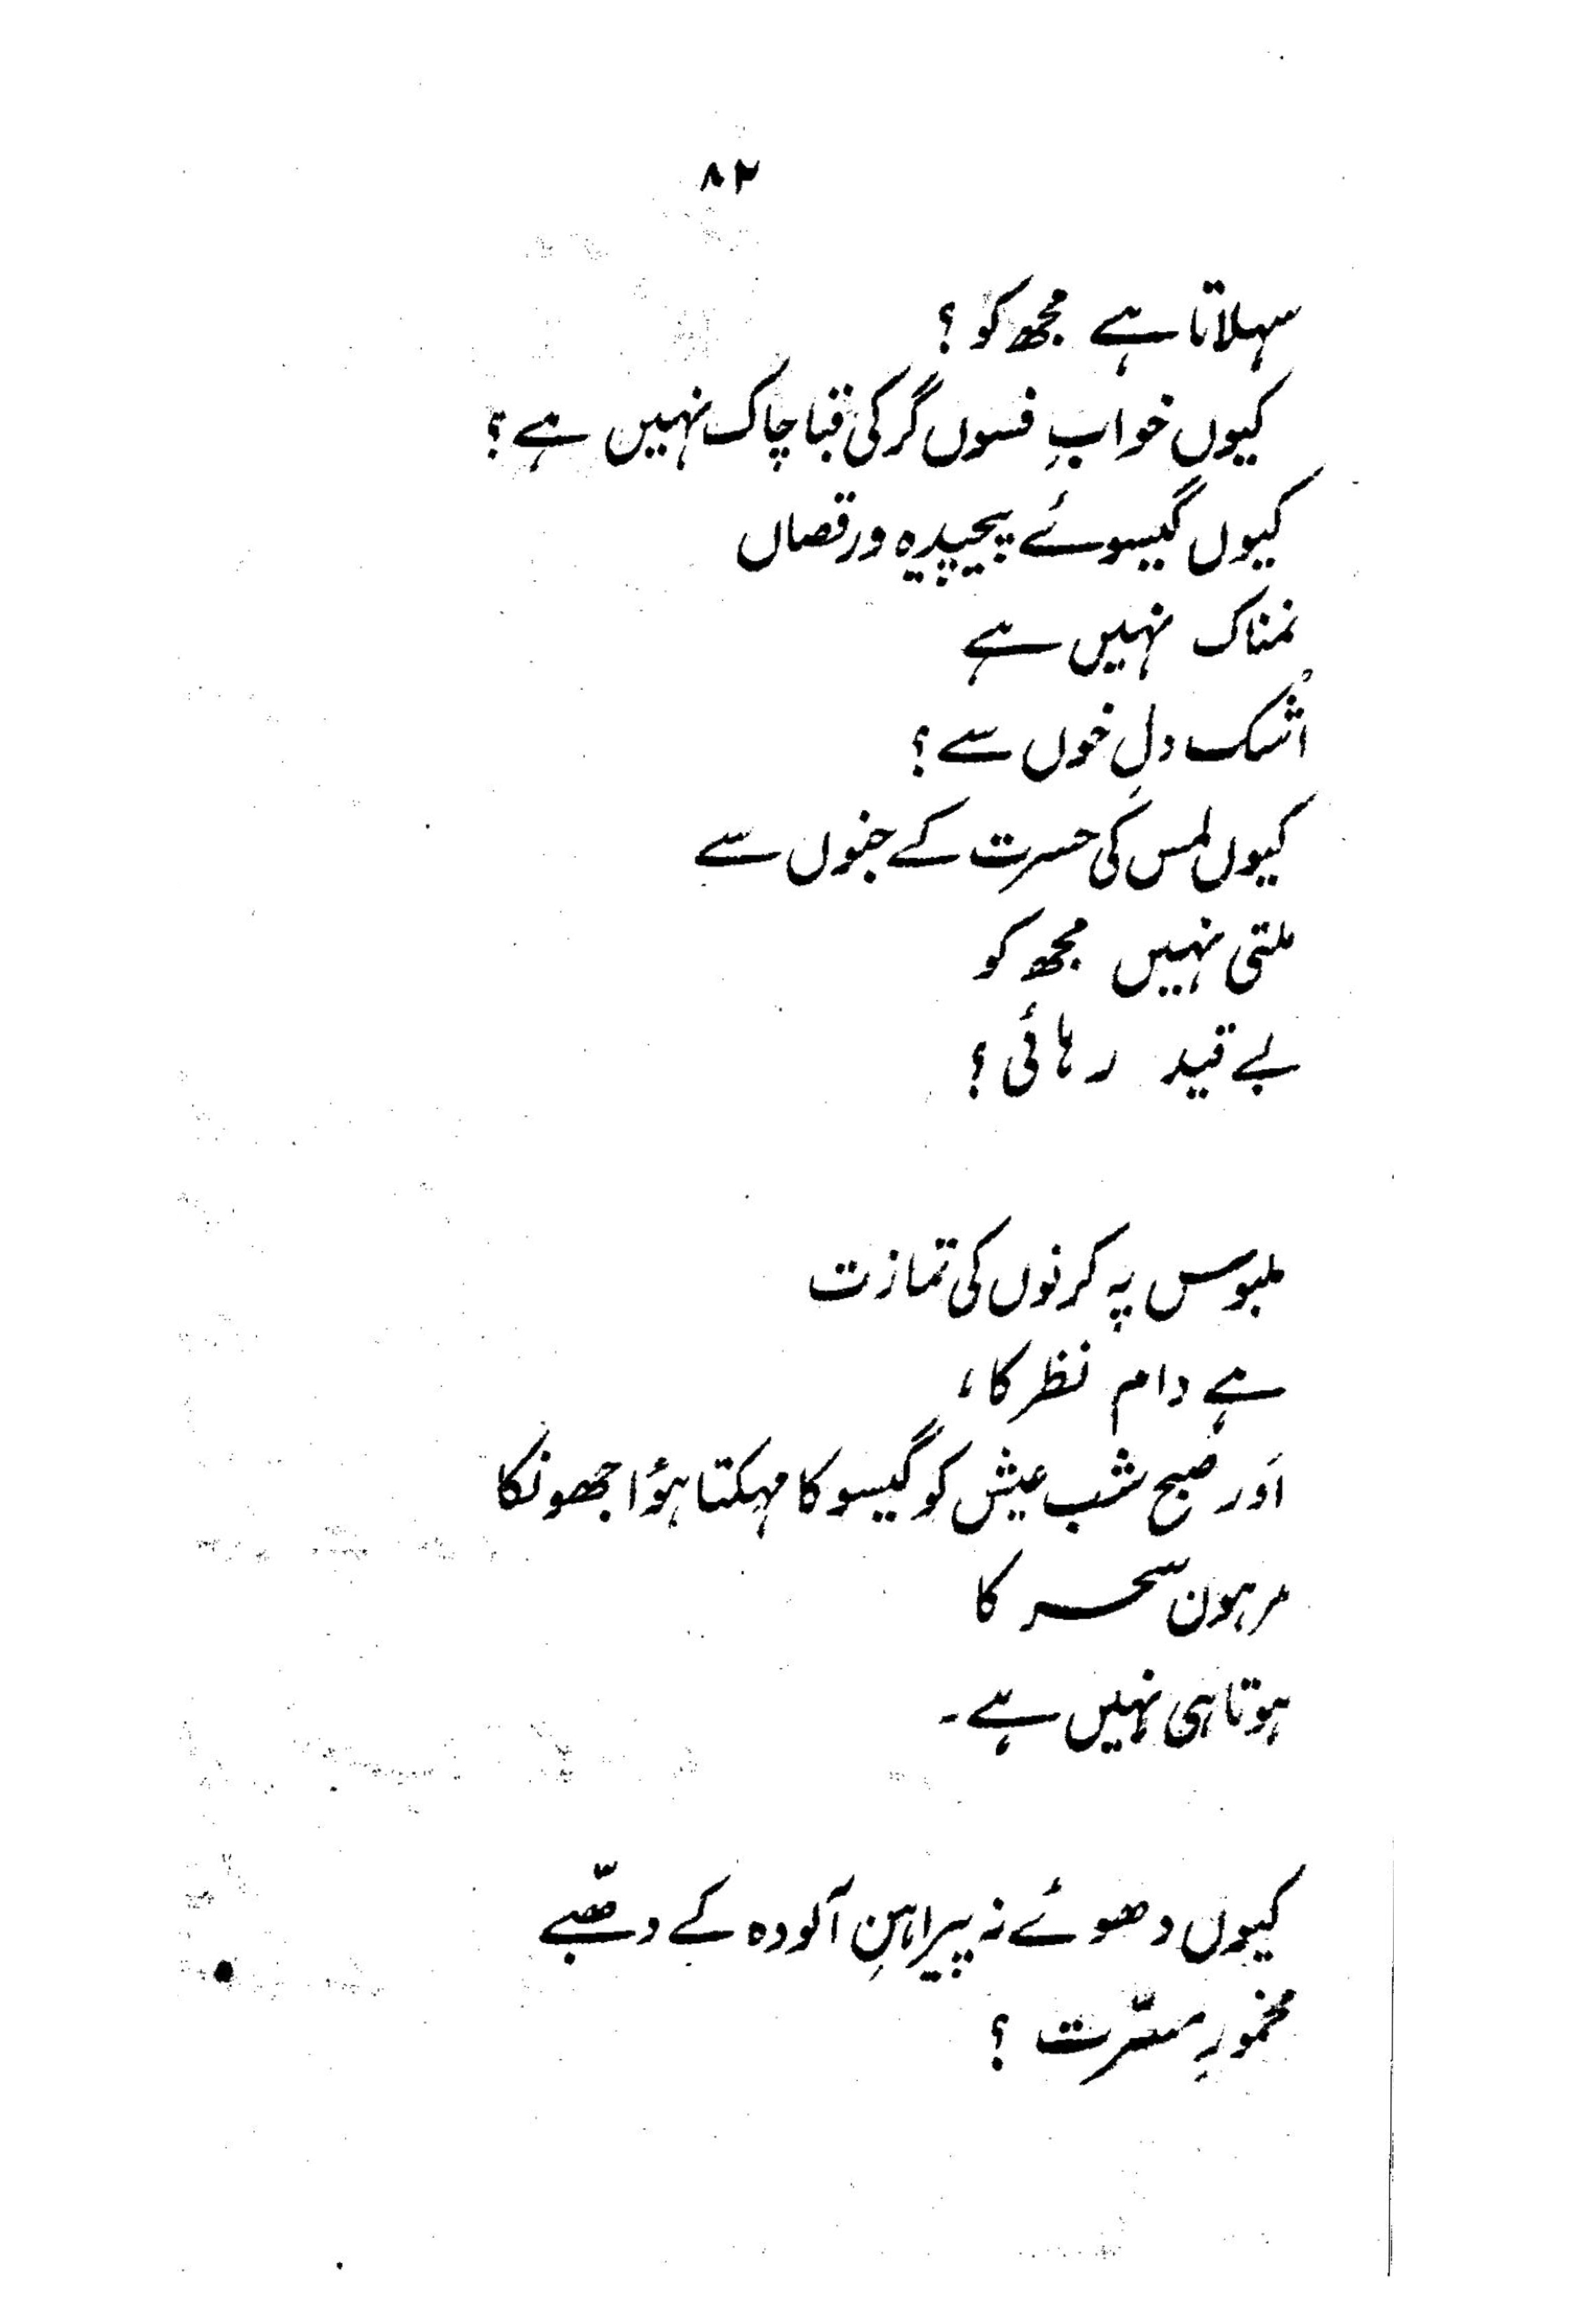 ۸۲
سہلاتا ہے مجھ کو ؟
کیوں خوابِ فسوں گر کی قبا چاک نہیں ہے ؟
کیوں گیسوئے پیچیدہ و رقصاں
نمناک نہیں ہے
اشک دلِ خوں سے ؟
کیوں لمس کی حسرت کے جنوں سے
ملتی نہیں مجھ کو
بے قید رہائی ؟
ملبوس پہ کرنوں کی تمازت
ہے دام نظر کا ،
اَور صبح شب عیش کو گیسو کا مہکتا ہوٗا جھونکا
مرہون سحر کا
ہوتا ہی نہیں ہے ۔
کیوں دھوئے نہ پیراہنِ آلودہ کے دھبّے
مخمورِ مسرّت ؟